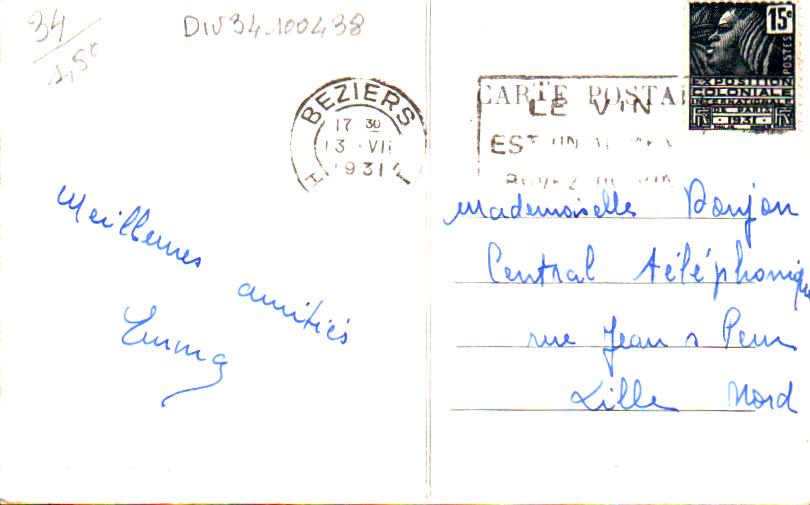 34
1,5€
DIV34.100438
BEZIERS
17 30
13 VII
1931
CARTE POSTA
LE VIN
EST UN
BUVEZ DU VIN
15c
POSTES
EXPOSITION
COLONIALE
INTERNATIONALE
DE PARIS
1931
Meilleures
amitiés
Emma
Mademoiselle Donjon
Central téléphoniqu
rue Jean
Lille Nord